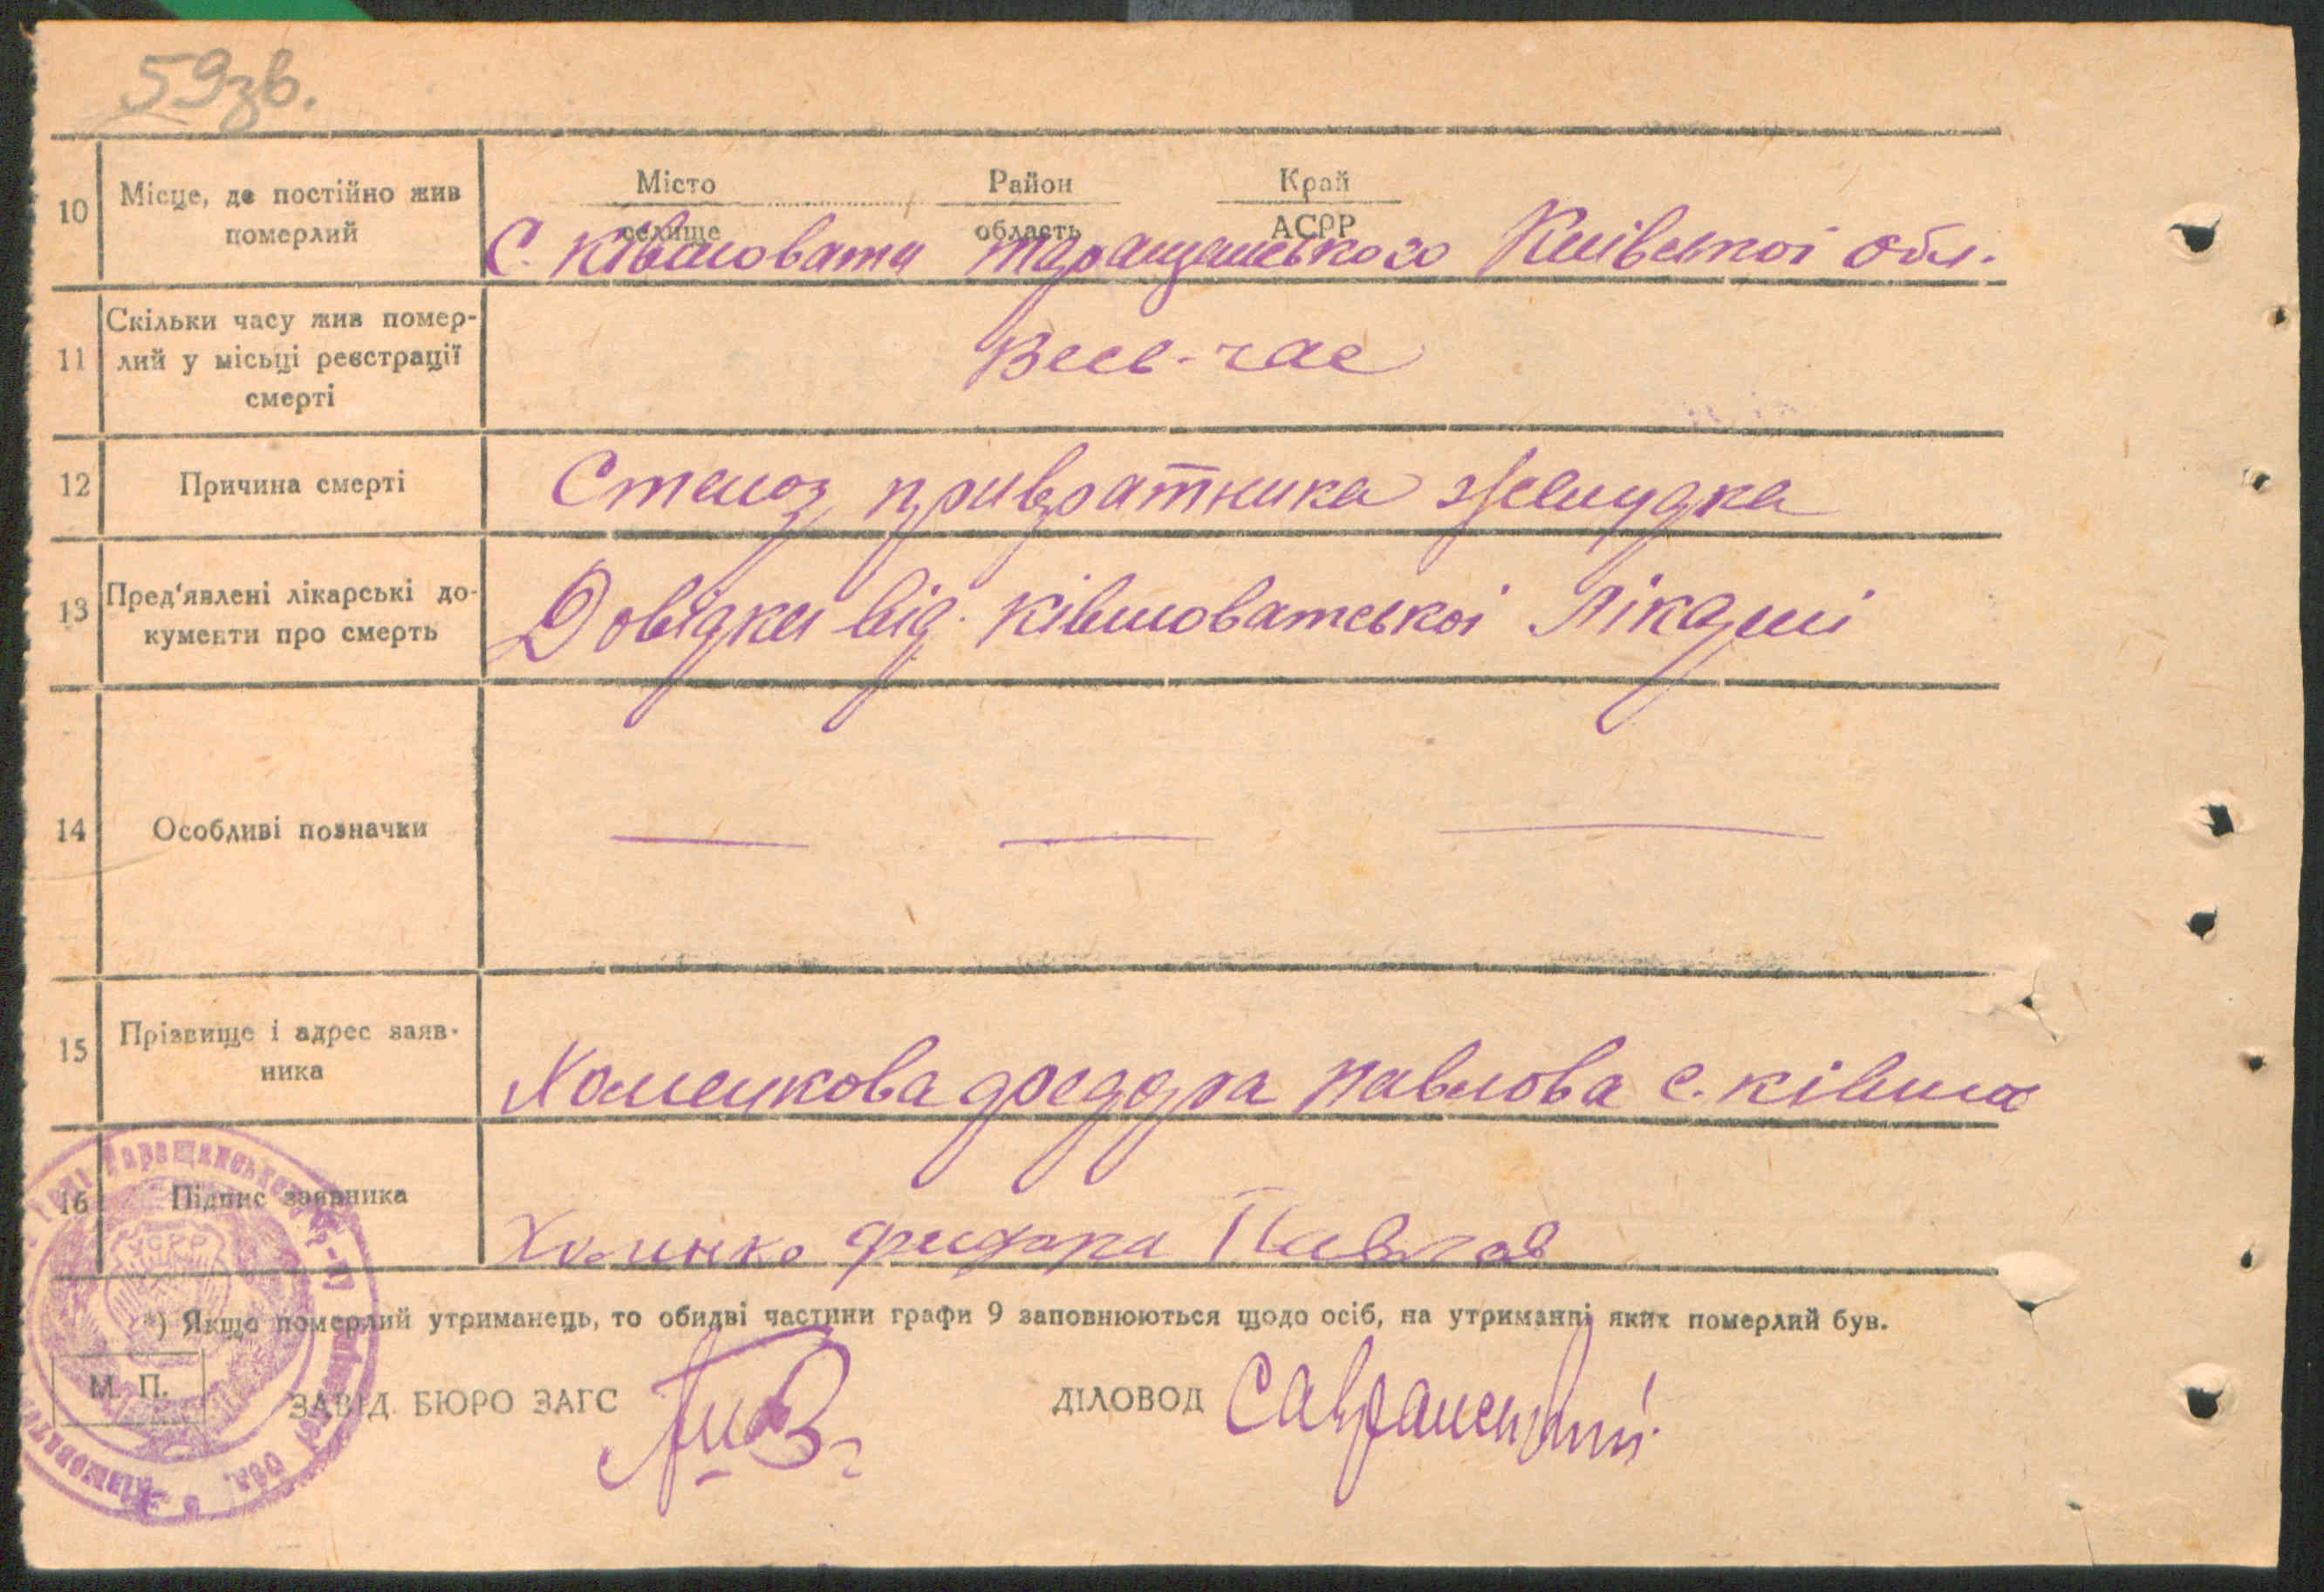 59зв.
10 Місце, де постійно жив померлий
Місто Район Край
селище область АСРР
С. Ківшовата Таращанського Київської обл.
11 Скільки часу жив помер-
лий у місьці реєстрації
смерті
Весь-час
12 Причина смерті
Стеноз привратника желудка
13 Пред'явлені лікарські до-
кументи про смерть
Довідка від. Ківшоватської Лікарні
14 Особливі позначки
15 Прізвище і адрес заяв-
ника
Хоменкова Федора Павлова с. Ківшов
16 Підпис заявника
Хоменко Федора Павлов
*) Якщо померлий утриманець, то обидві частини графи 9 заповнюються щодо осіб, на утриманні яких померлий був.
М. П.
ЗАВІД. БЮРО ЗАГС
ДІЛОВОД
Таращанського р-ну
УСРР